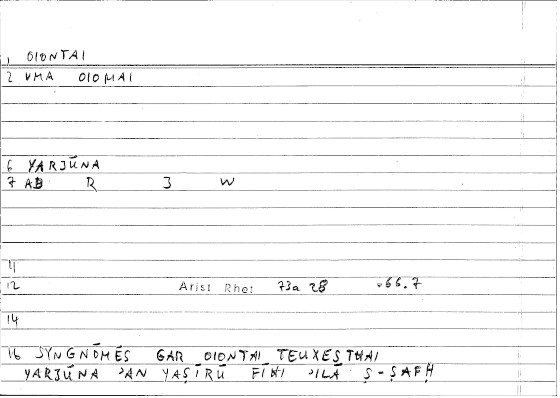 1 OIONTAI
2 VMA OIOMAI
6 YARJŪNA
7 AB R J W
11
12 Arist Rhet 73a 28 66.7
14
16 SYNGNŌMĒS GAR OIONTAI TEUXESTHAI
YARJŪNA ʾAN YAṢĪRŪ FĪHI ʾILĀ Ṣ-ṢAFḤ